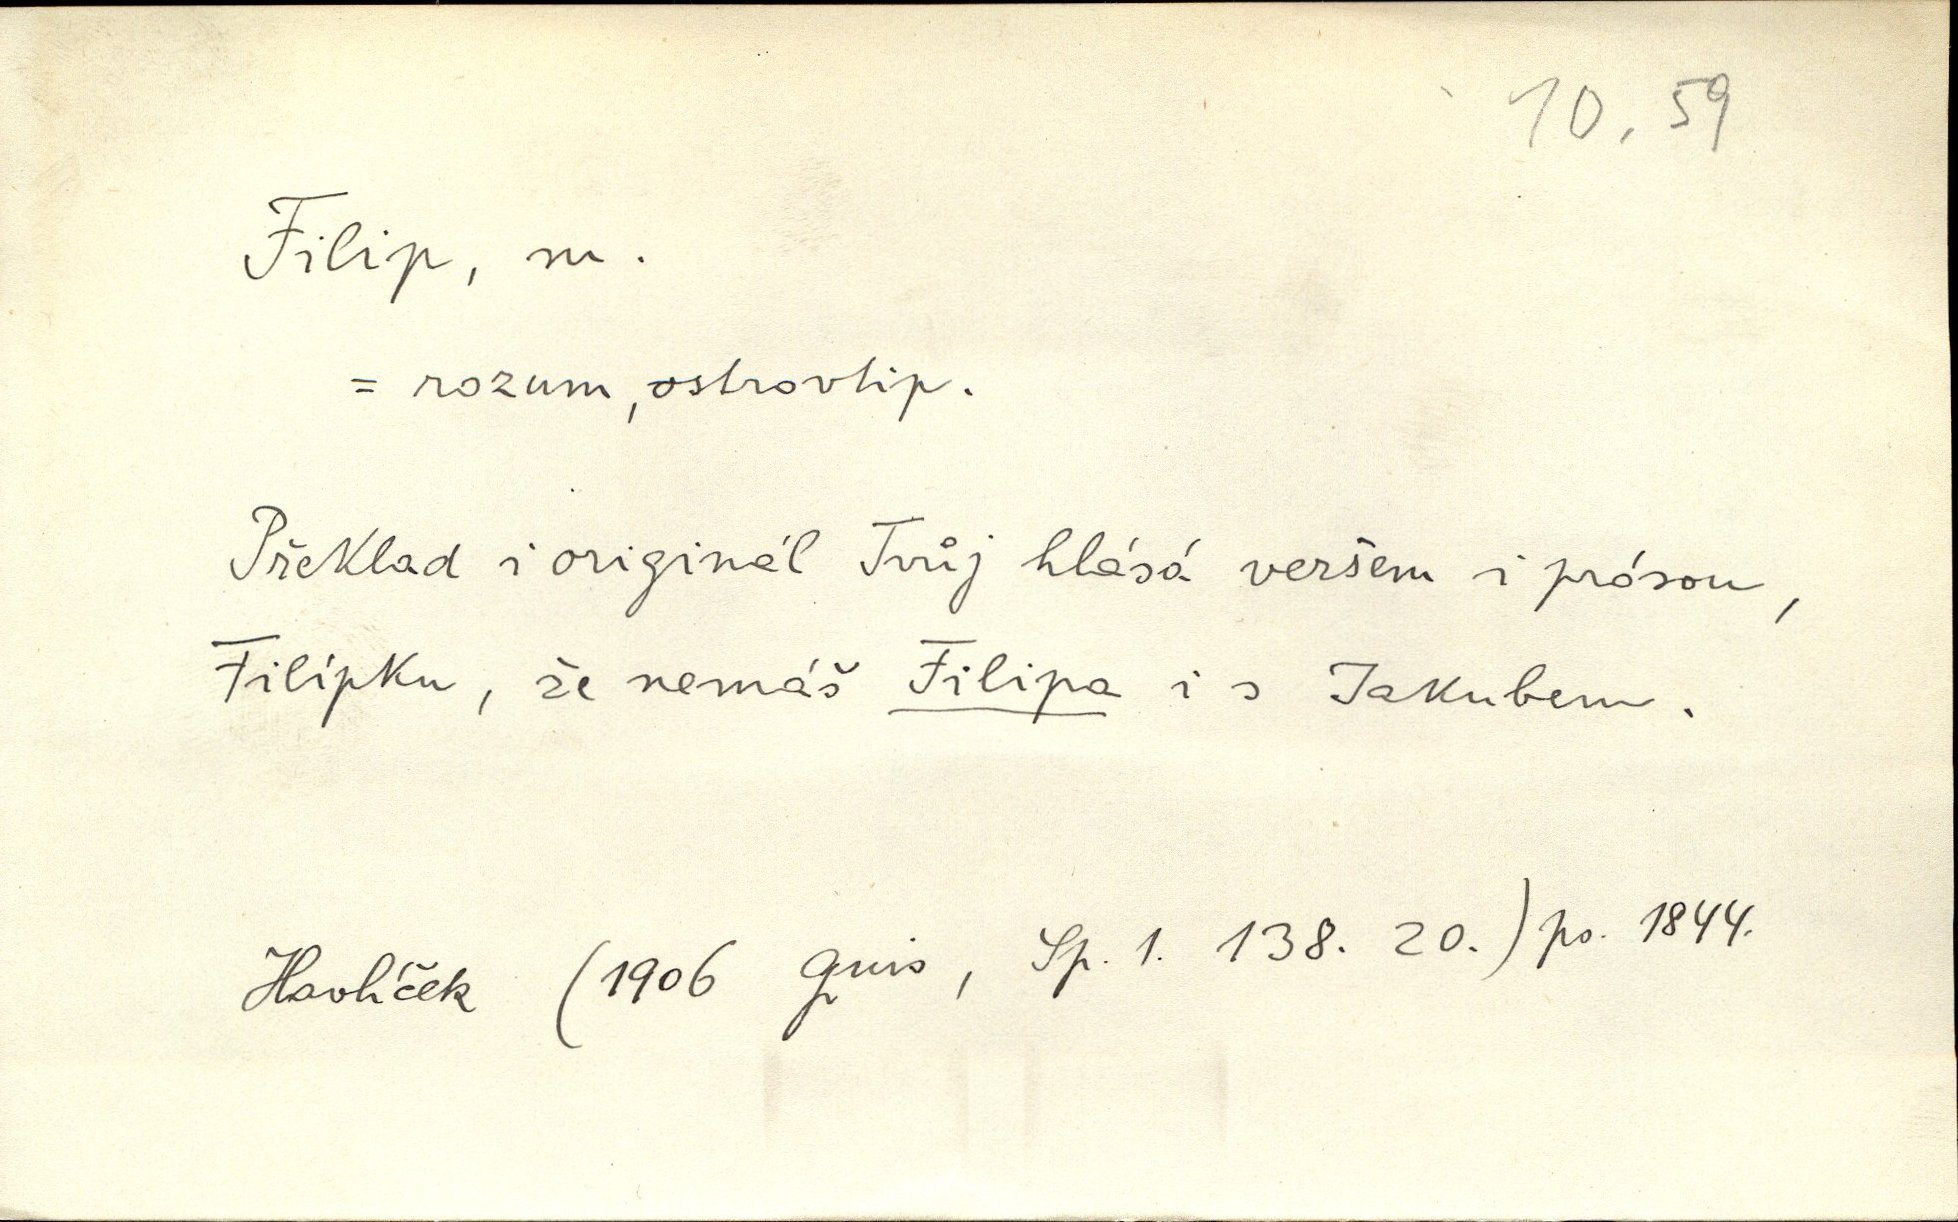 10.59
Filip, m.
= rozum, ostrovtip.
Překlad i originál Tvůj hlásá veršem i prósou,
Filípku, že nemáš Filipa i s Jakubem.
Havlíček (1906 Quis, Sp. 1. 138. 20.) po. 1844.